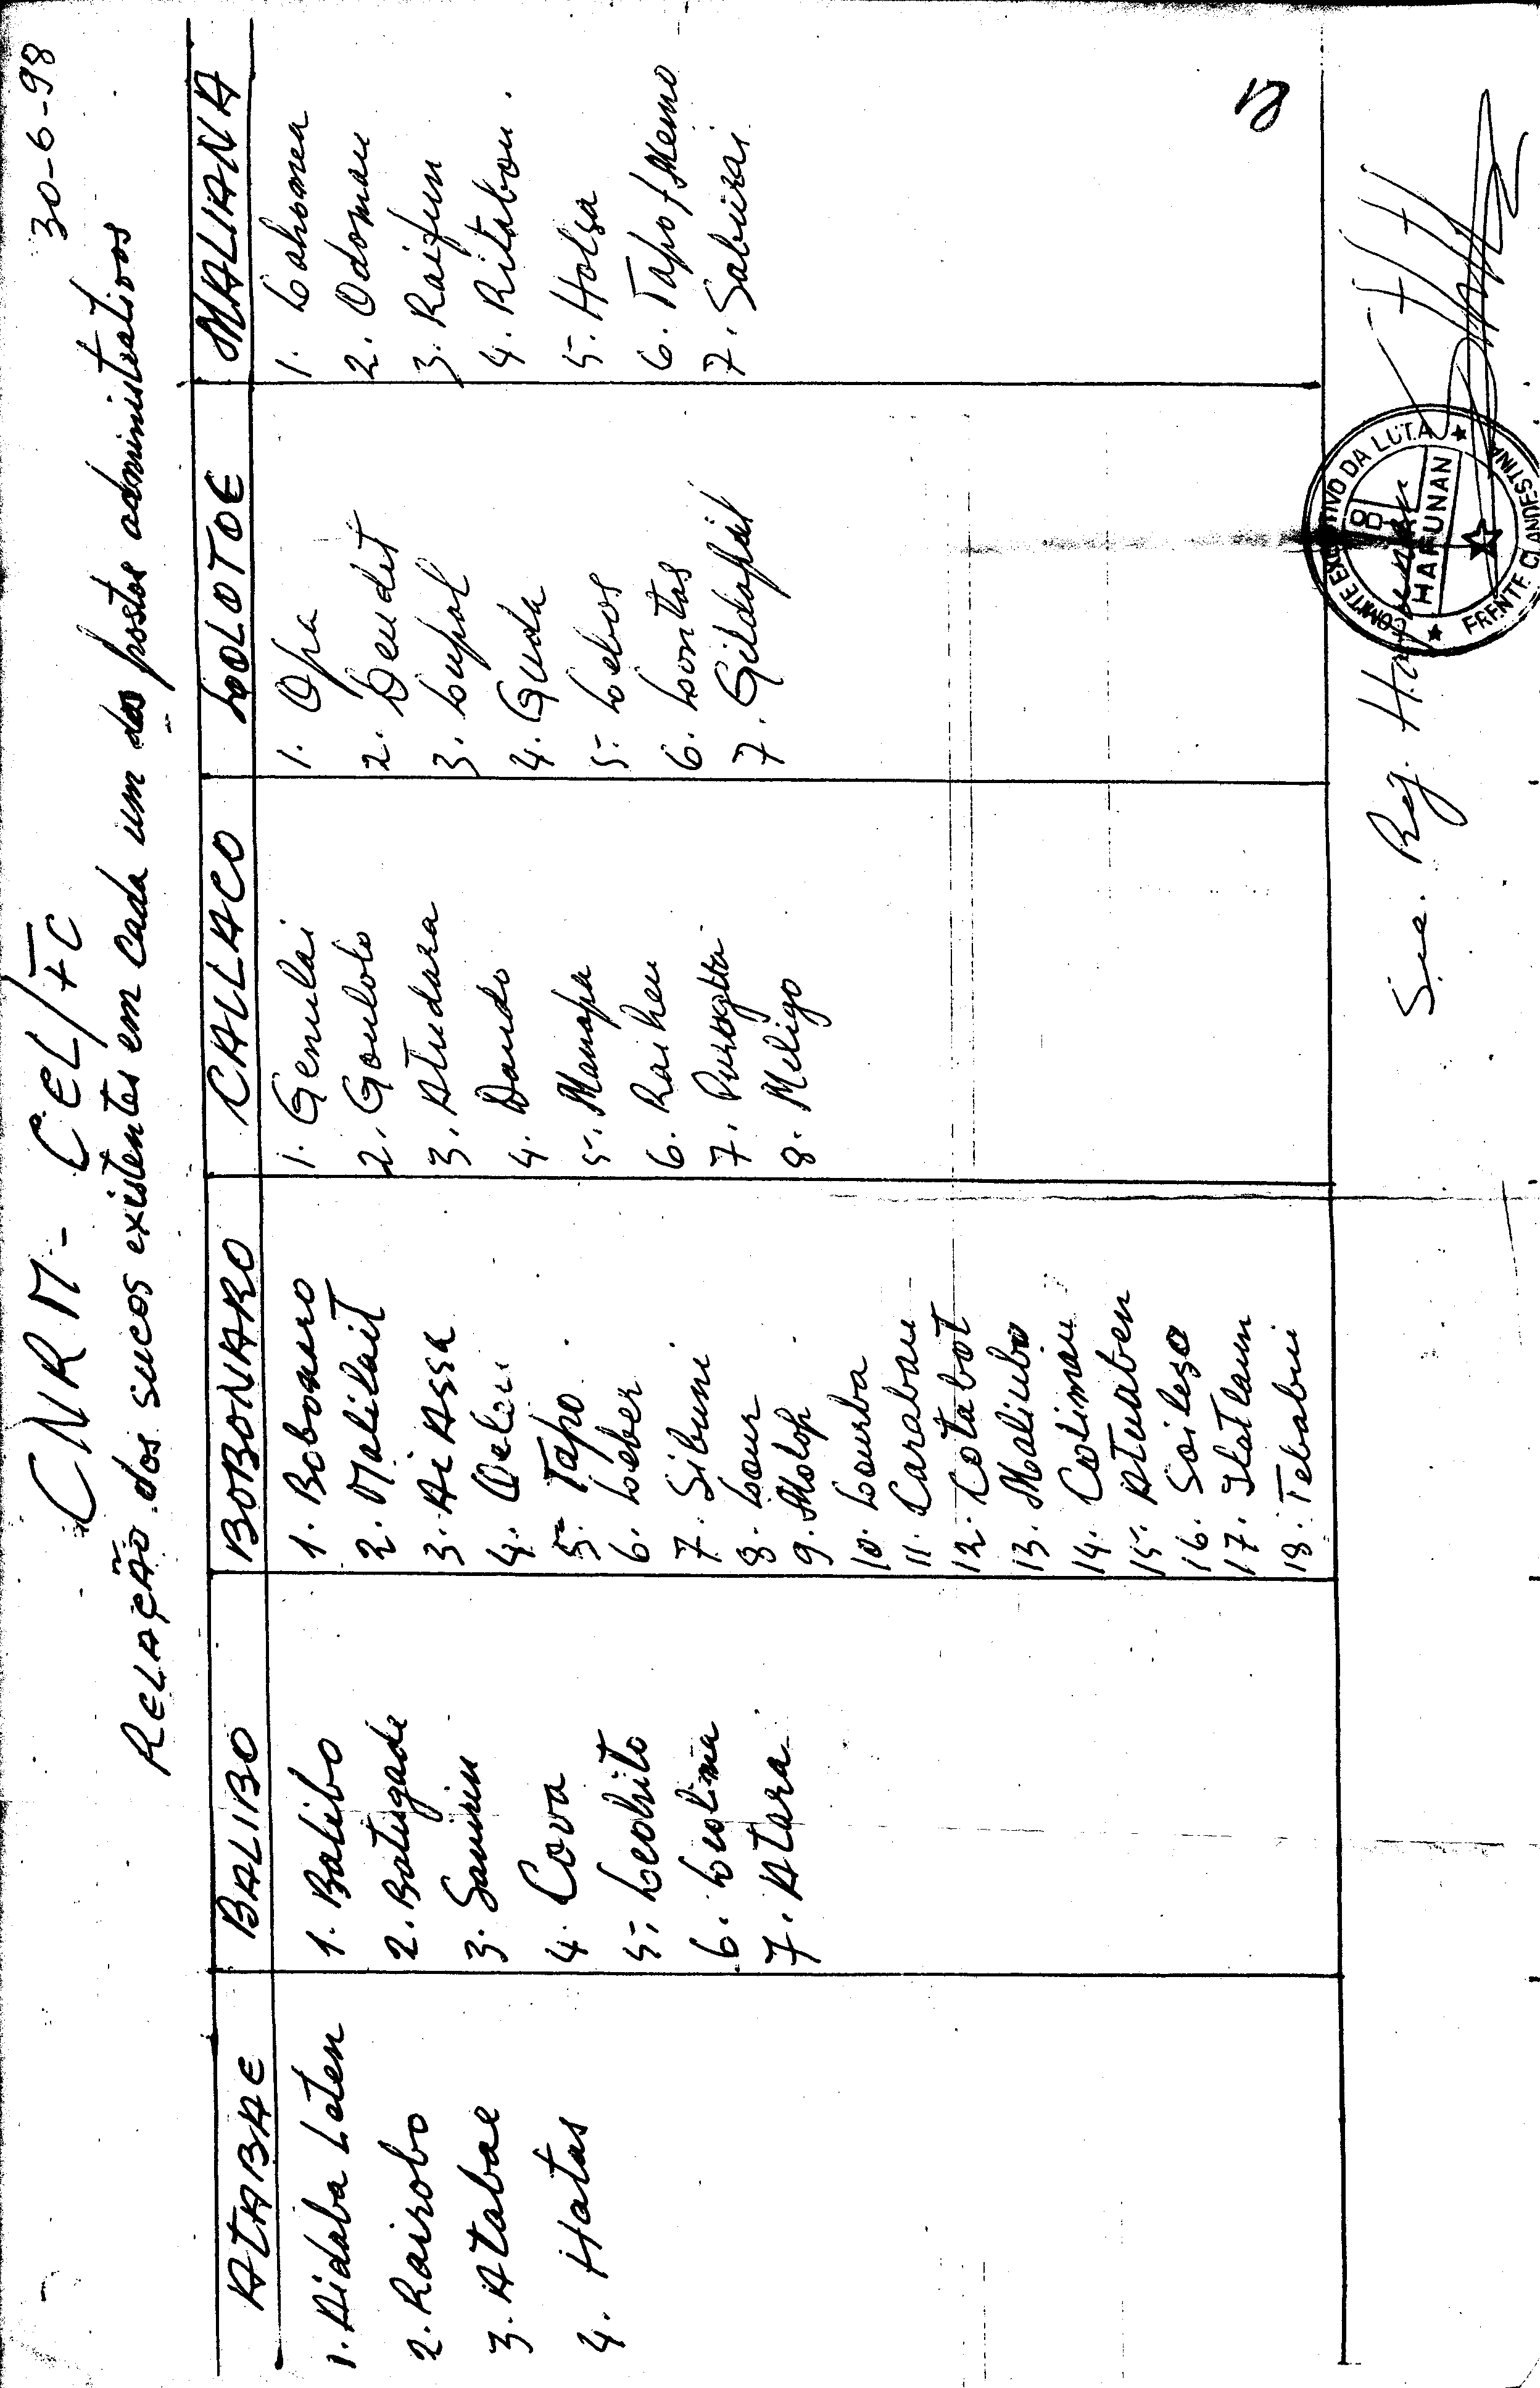 30-6-98
CNRM - CEL/FC
RELAÇÃO dos sucos existentes em cada um dos postos administrativos
ATABAE
1. Aidaba Leten
2. Rairobo
3. Atabae
4. Hatas
BALIBO
1. Balibo
2. Batugade
3. Sanirin
4. Cova
5. Leohito
6. Leolima
7. Atara
BOBONARO
1. Bobonaro
2. Malilait
3. Ai Assa
4. Oeleu
5. Tapo
6. Leber
7. Sibuni
8. Lour
9. Molop
10. Lourba
11. Carabau
12. Cotabot
13. Maliubo
14. Colimau
15. Atuaben
16. Soilezo
17. Ilatlaun
18. Tebabui
CAILACO
1. Genulai
2. Goulolo
3. Atudara
4. Daudo
5. Manapa
6. Raiheu
7. Purogoa
8. Meligo
LOLOTOE
1. Opa
2. Deudet
3. Lupal
4. Guda
5. Lebos
6. Lontas
7. Gildapil
MALIANA
1. Lahomea
2. Odomau
3. Raifun
4. Ritabou.
5. Holsa
6. Tapo / Memo
7. Saburai
Sec. Reg. Hafunan
COMITE EXECUTIVO DA LUTA
HAFUNAN
FRENTE CLANDESTINA